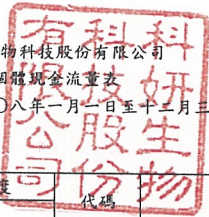 物科技股份有限公司
個體現金流量表
〇八年一月一日至十二月三
代碼
科妍生物
科技股份
有限公司